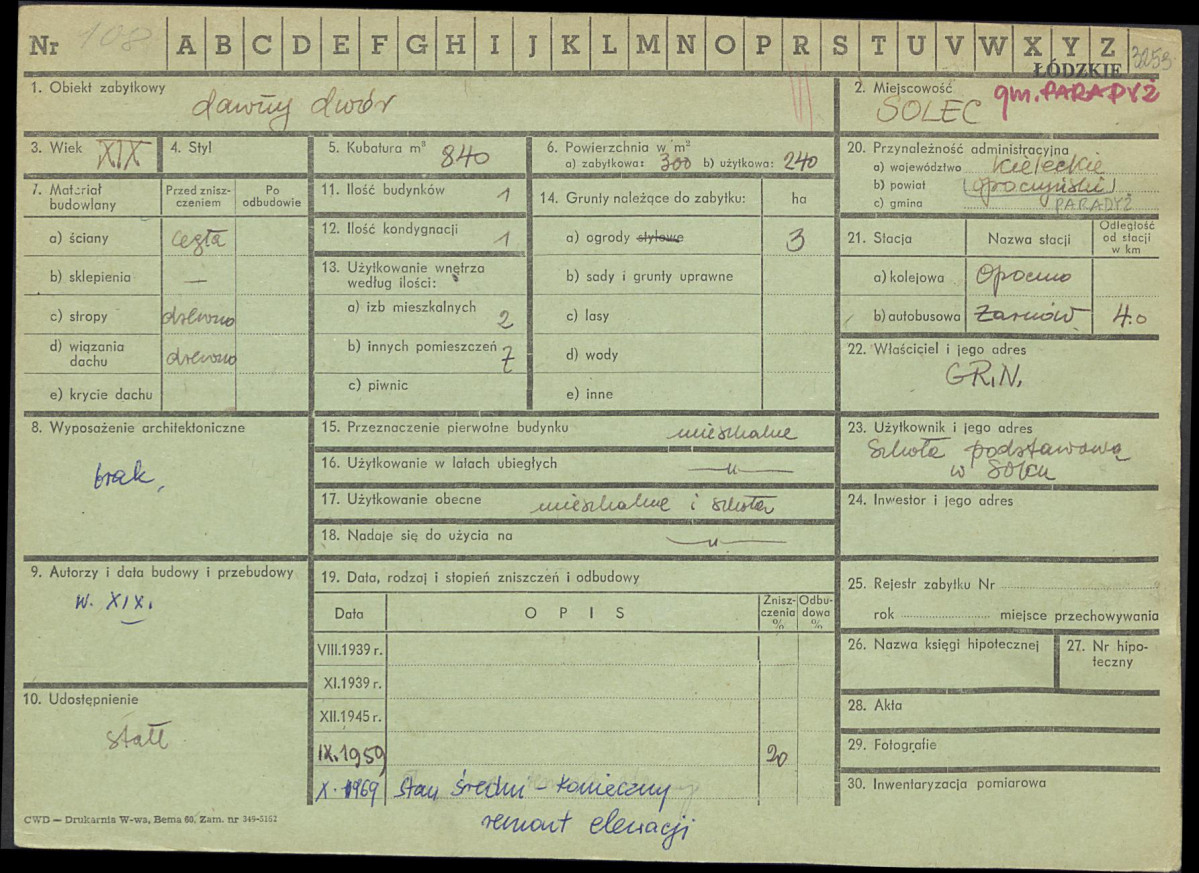 Nr 108 A B C D E F G H I J K L M N O P R S T U V W X Y Z 3253
ŁÓDZKIE
1. Obiekt zabytkowy
dawny dwór
2. Miejscowość gm. PARADYŻ
SOLEC
3. Wiek XIX
4. Styl
5. Kubatura m³ 840
6. Powierzchnia w m²
a) zabytkowa: 300 b) użytkowa: 240
20. Przynależność administracyjna
a) województwo Kieleckie
b) powiat (opoczyński)
c) gmina PARADYŻ
7. Materiał budowlany
Przed zniszczeniem
Po odbudowie
a) ściany cegła
b) sklepienia —
c) stropy drewno
d) wiązania dachu drewno
e) krycie dachu
11. Ilość budynków 1
12. Ilość kondygnacji 1
13. Użytkowanie wnętrza
według ilości:
a) izb mieszkalnych 2
b) innych pomieszczeń 7
c) piwnic
14. Grunty należące do zabytku: ha
a) ogrody stylowe 3
b) sady i grunty uprawne
c) lasy
d) wody
e) inne
21. Stacja Nazwa stacji Odległość od stacji w km
a) kolejowa Opoczno
b) autobusowa Żarnów 4.0
22. Właściciel i jego adres
G.R.N.
8. Wyposażenie architektoniczne
brak,
15. Przeznaczenie pierwotne budynku mieszkalne
16. Użytkowanie w latach ubiegłych —„—
17. Użytkowanie obecne mieszkalne i szkoła
18. Nadaje się do użycia na —„—
23. Użytkownik i jego adres
Szkoła podstawowa
w Solcu
24. Inwestor i jego adres
9. Autorzy i data budowy i przebudowy
w. XIX.
19. Data, rodzaj i stopień zniszczeń i odbudowy
Data OPIS Zniszczenia % Odbudowa %
VIII.1939 r.
XI.1939 r.
XII.1945 r.
IX.1959 20
X. 1969 Stan średni – konieczny
remont elewacji
25. Rejestr zabytku Nr
rok miejsce przechowywania
26. Nazwa księgi hipotecznej
27. Nr hipoteczny
10. Udostępnienie
stałe
28. Akta
29. Fotografie
30. Inwentaryzacja pomiarowa
CWD — Drukarnia W-wa, Bema 60. Zam. nr 349-5162